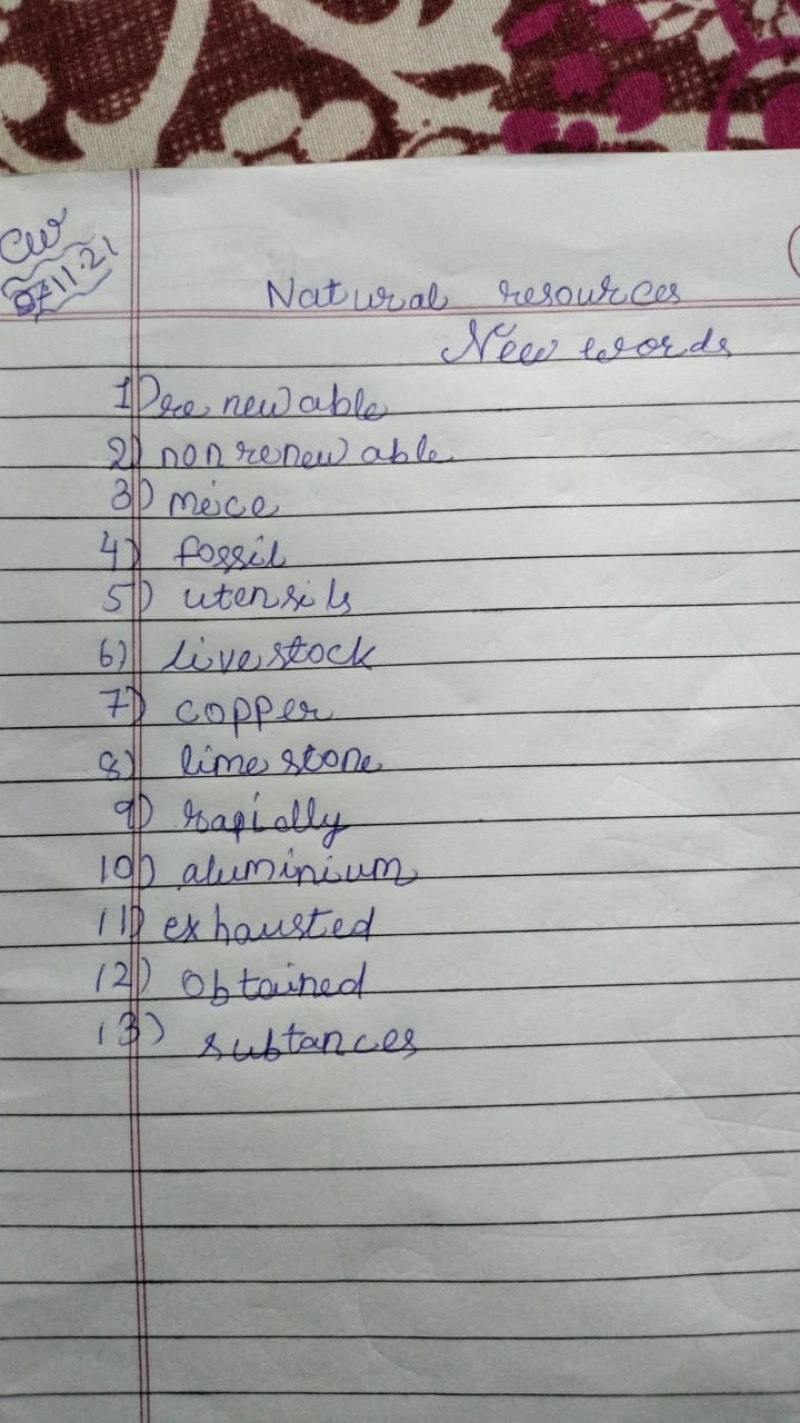 CW
07.11.21
Natural resources
New words
1) renewable
2) non renewable
3) meice
4) fossil
5) utensils
6) livestock
7) copper
8) limestone
9) rapidly
10) aluminium
11) exhausted
12) obtained
13) subtances